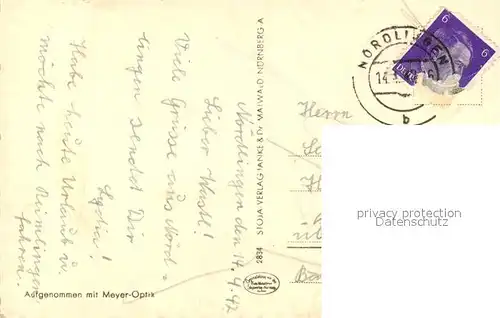 Nördlingen den 14.4.42
Lieber Wastl!
Viele Grüsse aus Nörd-
lingen sendet Dir
Lydia!
Habe heute Urlaub u.
möchte nach Reimlingen
fahren.
STOJA VERLAG JANKE & DR MAIWALD NÜRNBERG A
2834
Aufgenommen mit Meyer-Optik
NÖRDLINGEN
14.
b
6
6
Herrn
privacy protection
Datenschutz